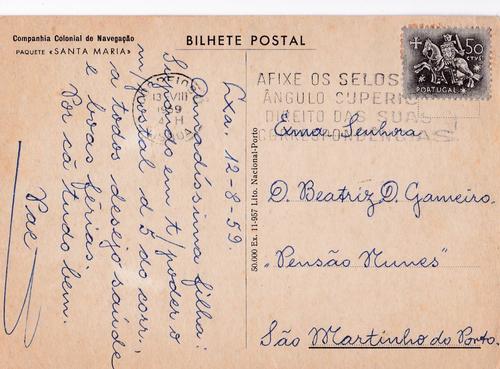 Companhia Colonial de Navegação
PAQUETE «SANTA MARIA»
BILHETE POSTAL
50
CTVS
PORTUGAL
AFIXE OS SELOS
ÂNGULO SUPERIO
DIREITO DAS SUAS
CORRESPONDÊNCIAS
13 VIII
1959
Lxa. 12-8-59.
Amadíssima filha:
Segundo em t/poder o
m/postal d 5 do corr.,
a todos desejo saúde
e boas férias.
Por cá tudo bem.
Pae
50.000 Ex. 11-957 Lito. Nacional-Porto
Exma. Senhora
D. Beatriz D. Gameiro.
"Pensão Nunes"
São Martinho do Porto.